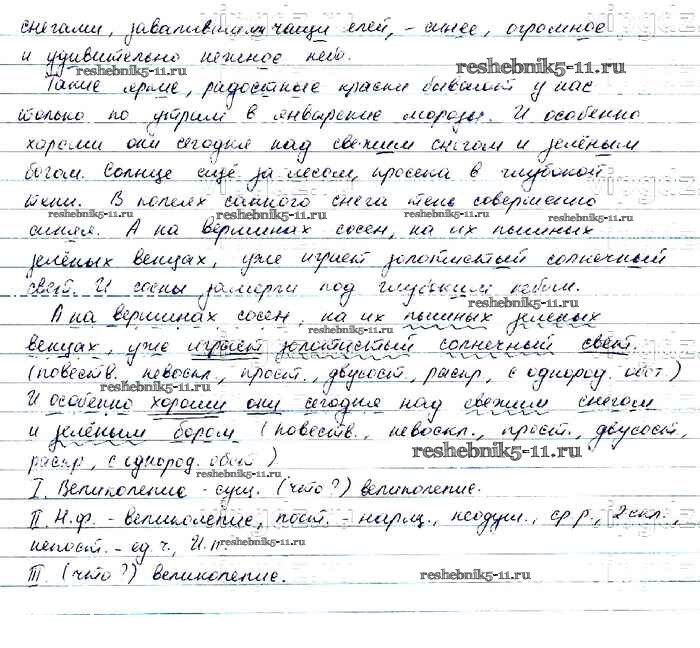 снегами, завалившими чащи елей, - синее, огромное
и удивительно нежное небо.
reshebnik5-11.ru
reshebnik5-11.ru
Такие яркие, радостные краски бывают у нас
только по утрам в январские морозы. И особенно
хороши они сегодня над свежим снегом и зелёным
бором. Солнце ещё за лесом, просека в глубокой
тени. В полях санного снега тень совершенно
reshebnik5-11.ru
reshebnik5-11.ru
reshebnik5-11.ru
синяя. А на вершинах сосен, на их пышных
зелёных венцах, уже играет золотистый солнечный
свет. И сосны замерли под глубоким небом.
reshebnik5-11.ru
А на вершинах сосен, на их пышных зеленых
reshebnik5-11.ru
венцах, уже играет золотистый солнечный свет.
(повеств. невоскл., прост., двусост., распр., с однород. обст.)
reshebnik5-11.ru
И особенно хороши они сегодня над свежим снегом
и зелёным бором (повеств., невоскл., прост., двусост.,
распр., с однород. обст.)
reshebnik5-11.ru
I. Великолепие - сущ. (что?) великолепие.
II. Н.ф. - великолепие, пост. - нариц., неодуш., ср.р., 2 скл.,
непост. - ед.ч., И.п.
reshebnik5-11.ru
III. (что?) великолепие.
reshebnik5-11.ru